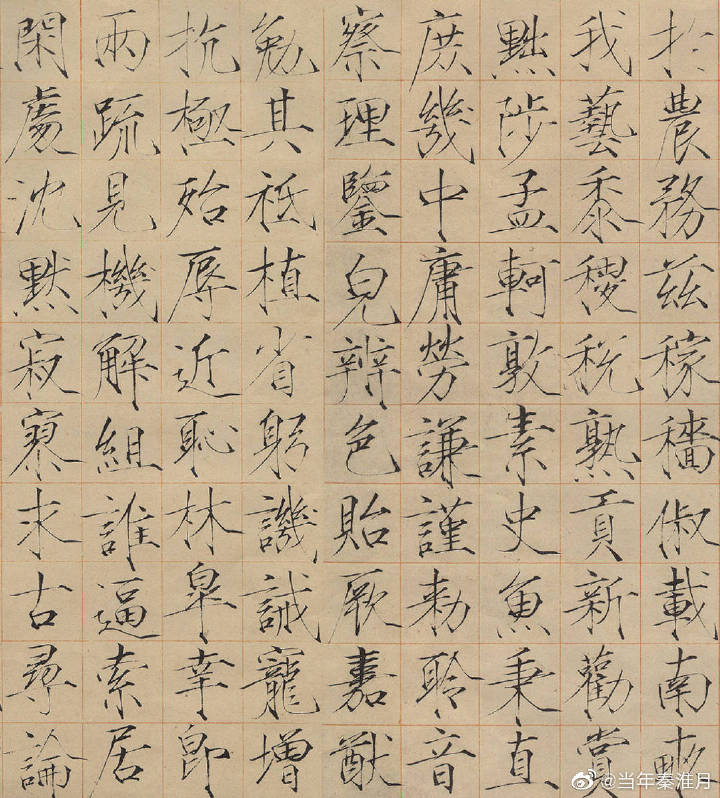 於農務茲稼穡俶載南畝
我藝黍稷稅熟貢新勸賞
黜陟孟軻敦素史魚秉直
庶幾中庸勞謙謹勅聆音
察理鑒皃辨色貽厥嘉猷
勉其祗植省躬譏誡寵增
抗極殆辱近恥林皋幸即
兩疏見機解組誰逼索居
閑處沈默寂寥求古尋論
@当年秦淮月